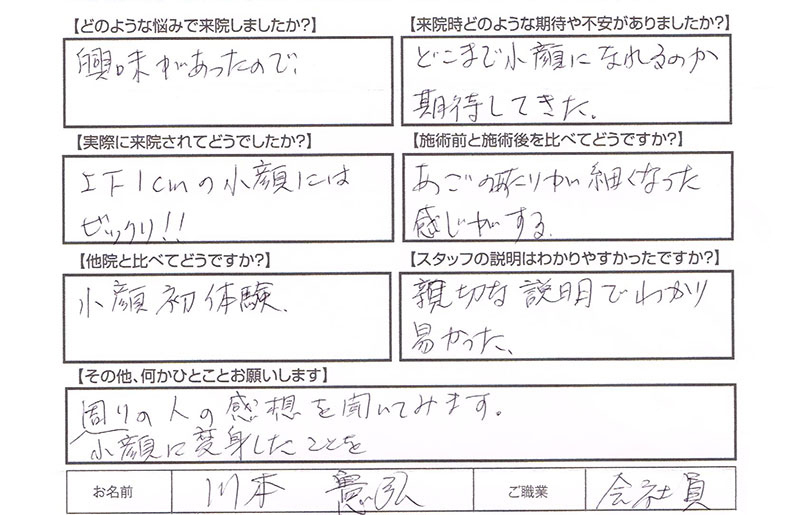 【どのような悩みで来院しましたか?】
興味があったので、
【来院時どのような期待や不安がありましたか?】
どこまで小顔になれるのか
期待してきた。
【実際に来院されてどうでしたか?】
上下1cmの小顔には
ビックリ!!
【施術前と施術後を比べてどうですか?】
あごのあたりが細くなった
感じがする.
【他院と比べてどうですか?】
小顔初体験.
【スタッフの説明はわかりやすかったですか?】
親切な説明でわかり
易かった、
【その他、何かひとことお願いします】
周りの人の感想を聞いてみます。
小顔に変身したことを
お名前 川本 憲弘 ご職業 会社員